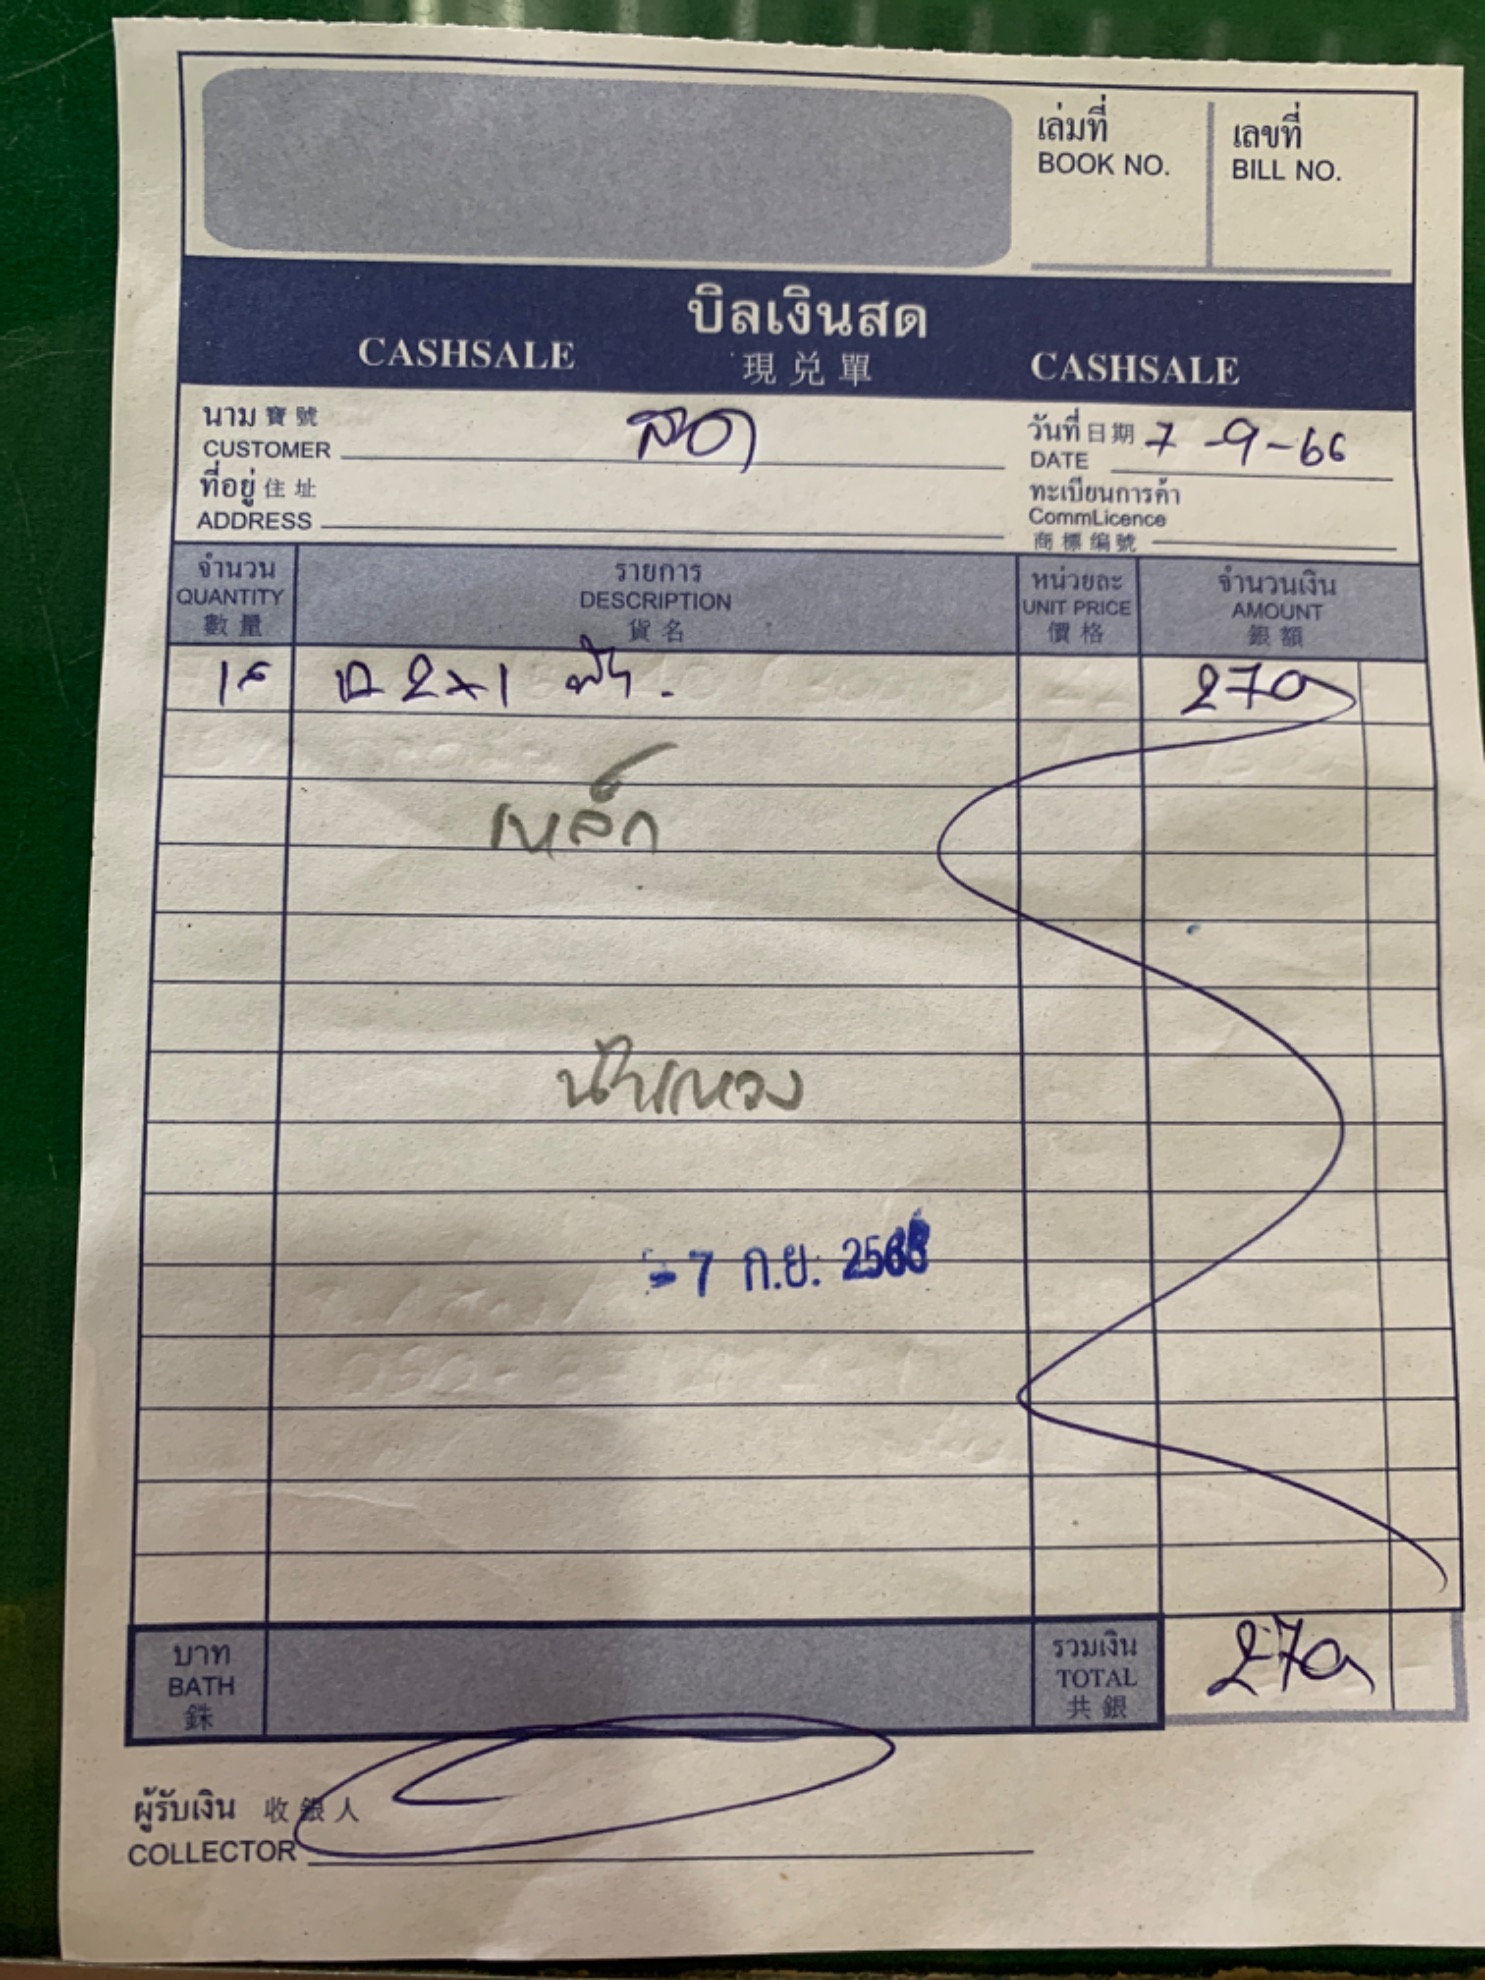 เล่มที่
BOOK NO.
เลขที่
BILL NO.
บิลเงินสด
CASHSALE 現兌單 CASHSALE
นาม 寶號
CUSTOMER สด
วันที่ 日期 7-9-66
DATE
ที่อยู่ 住址
ADDRESS
ทะเบียนการค้า
CommLicence
商標编號
จำนวน
QUANTITY
數量
รายการ
DESCRIPTION
貨名
หน่วยละ
UNIT PRICE
價格
จำนวนเงิน
AMOUNT
銀額
2x1 270
เหล็ก
-7 ก.ย. 2566
บาท
BATH
銖
รวมเงิน
TOTAL
共銀
270
ผู้รับเงิน 收銀人
COLLECTOR